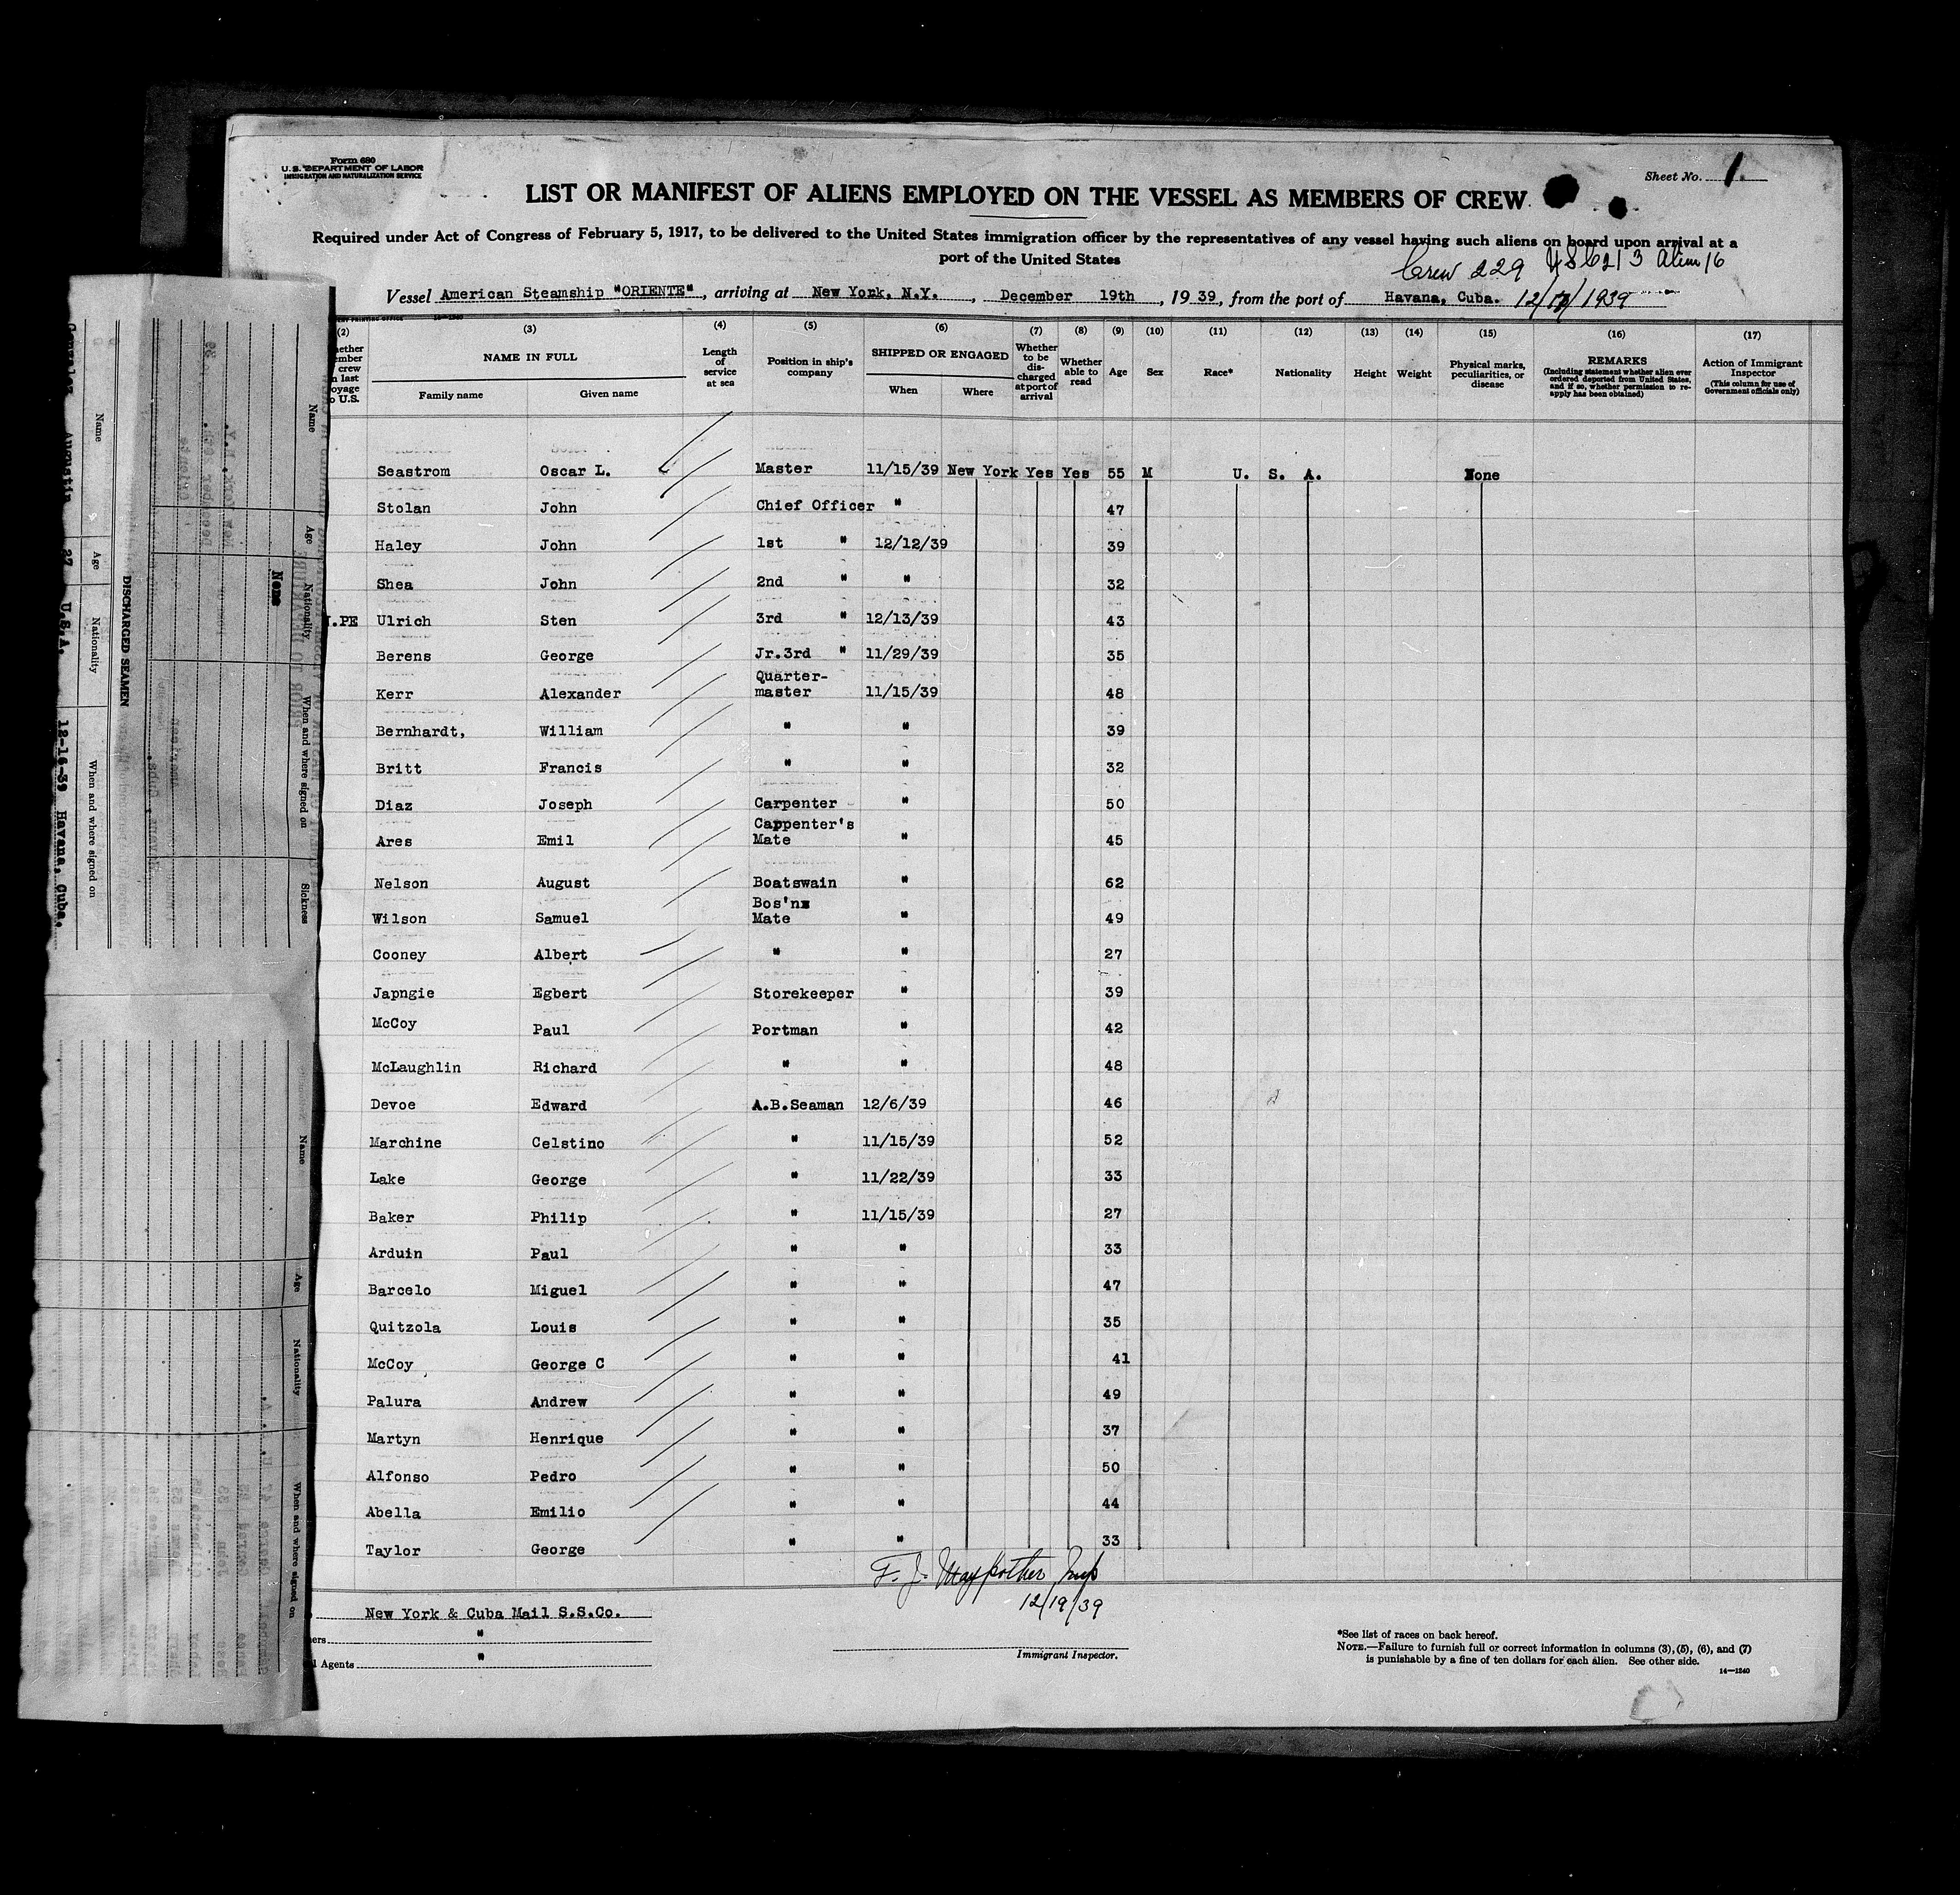 Form 680
U. S. DEPARTMENT OF LABOR
IMMIGRATION AND NATURALIZATION SERVICE
Sheet No. 1.
LIST OR MANIFEST OF ALIENS EMPLOYED ON THE VESSEL AS MEMBERS OF CREW
Required under Act of Congress of February 5, 1917, to be delivered to the United States immigration officer by the representatives of any vessel having such aliens on board upon arrival at a
port of the United States
Crew 229 USC 213 Alien 16
Vessel American Steamship "ORIENTE", arriving at New York, N.Y., December 19th, 19 39, from the port of Havana, Cuba. 12/ /1939
(2) (3) (4) (5) (6) (7) (8) (9) (10) (11) (12) (13) (14) (15) (16) (17)
NAME IN FULL
Family name Given name
Length of service at sea
Position in ship's company
SHIPPED OR ENGAGED
When Where
Whether to be discharged at port of arrival
Whether able to read
Age Sex Race* Nationality Height Weight
Physical marks, peculiarities, or disease
REMARKS
(Including statement whether alien ever ordered deported from United States, and if so, whether permission to reapply has been obtained)
Action of Immigrant Inspector
(This column for use of Government officials only)
Seastrom Oscar L. Master 11/15/39 New York Yes Yes 55 M U. S. A. None
Stolan John Chief Officer " 47
Haley John 1st " 12/12/39 39
Shea John 2nd " " 32
Ulrich Sten 3rd " 12/13/39 43
Berens George Jr.3rd " 11/29/39 35
Kerr Alexander Quarter-master 11/15/39 48
Bernhardt, William " " 39
Britt Francis " " 32
Diaz Joseph Carpenter " 50
Ares Emil Cappenter's Mate " 45
Nelson August Boatswain " 62
Wilson Samuel Bos'nx Mate " 49
Cooney Albert " " 27
Japngie Egbert Storekeeper " 39
McCoy Paul Portman " 42
McLaughlin Richard " " 48
Devoe Edward A.B.Seaman 12/6/39 46
Marchine Celstino " 11/15/39 52
Lake George " 11/22/39 33
Baker Philip " 11/15/39 27
Arduin Paul " " 33
Barcelo Miguel " " 47
Quitzola Louis " " 35
McCoy George C " " 41
Palura Andrew " " 49
Martyn Henrique " " 37
Alfonso Pedro " " 50
Abella Emilio " " 44
Taylor George " " 33
12/19/39
New York & Cuba Mail S.S.Co.
"
Agents "
Immigrant Inspector.
*See list of races on back hereof.
NOTE.—Failure to furnish full or correct information in columns (3), (5), (6), and (7)
is punishable by a fine of ten dollars for each alien. See other side.
14—1240
DISCHARGED SEAMEN
Name Age Nationality When and where signed on
Augustin 27 U.S.A. 12-16-39 Havana, Cuba.
Name Age Nationality When and where signed on Sickness
None
Name Age Nationality When and where signed on